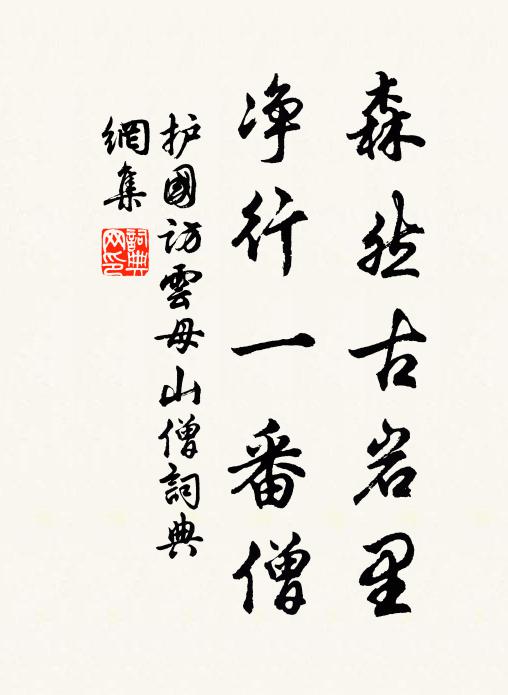 森然古岩里
净行一番僧
护國访雲母山僧詞典
網集
詞典
网印